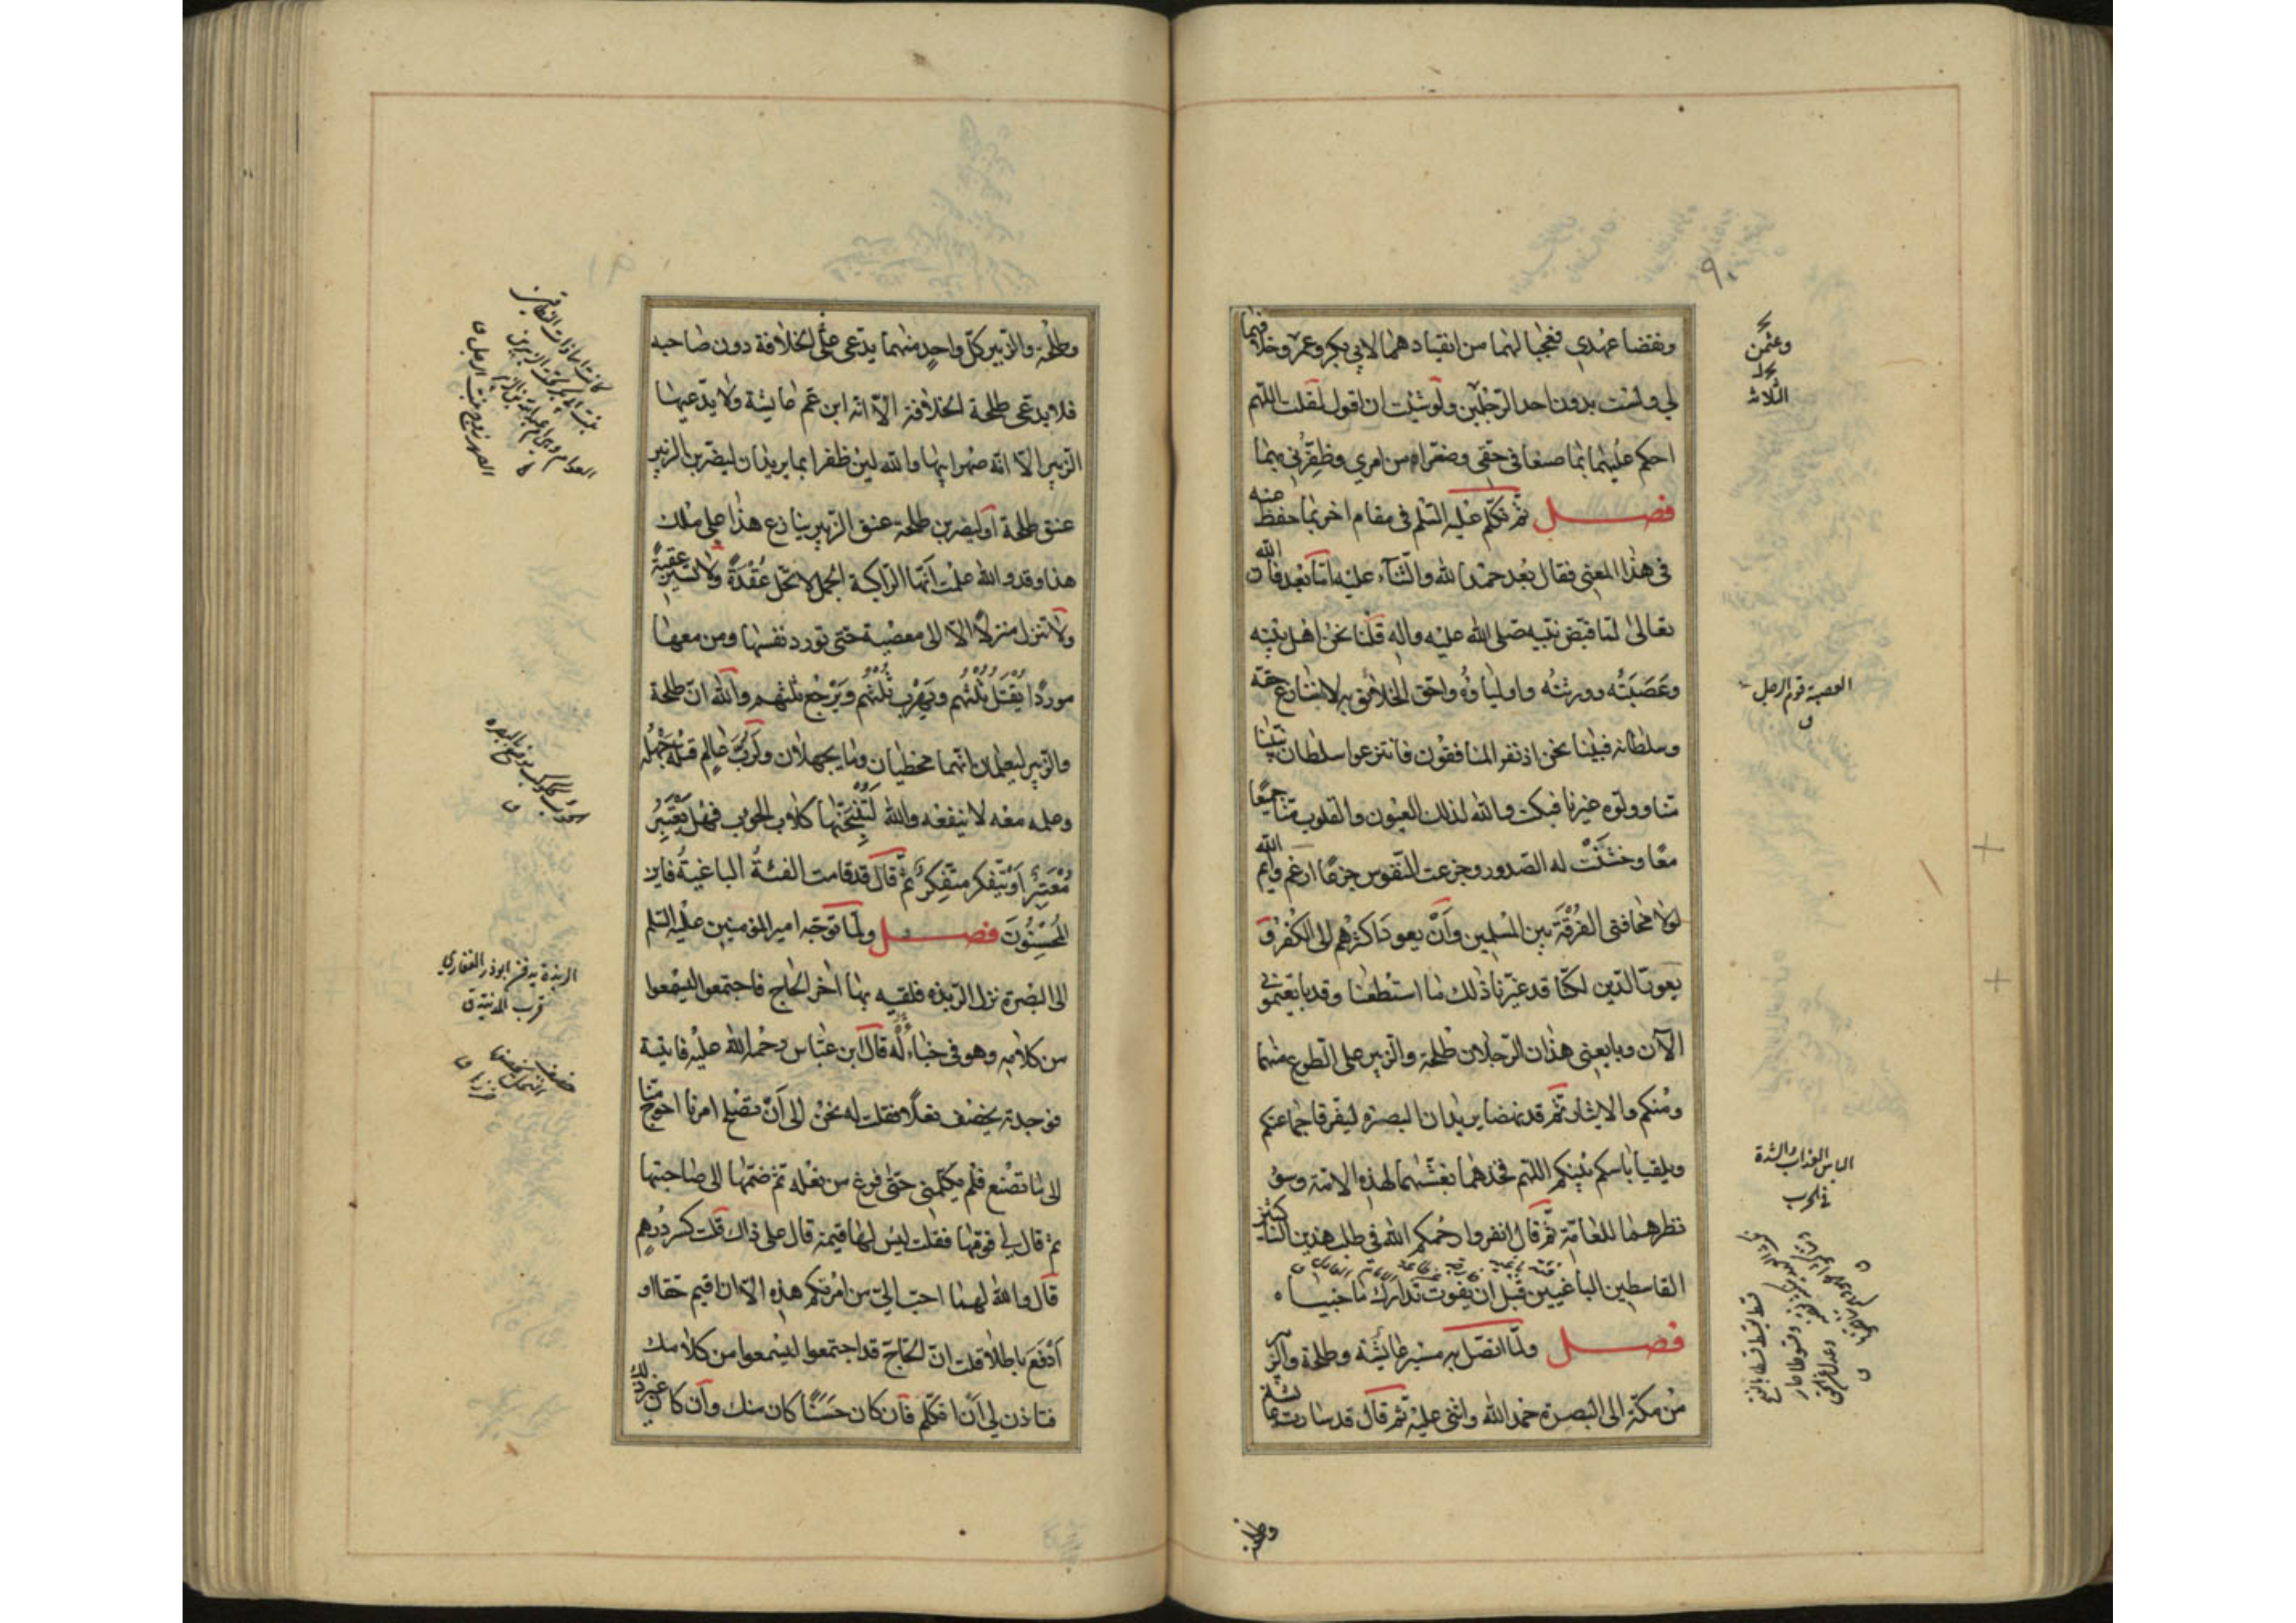 ونقضا عهدي فعجبا لهما من انقيادهما لابي بكر وعمر وخلافهما
لي ولست بدون احد الرجلين ولو شئت ان اقول لقلت اللهم
احكم عليهما بما صنعا في حقي وصغرا من امري وظفرني بهما
فصل ثم تكلم عليه السلم في مقام اخر بما حفظ منه
في هذا المعنى فقال بعد حمد الله والثناء عليه اما بعد فان الله
تعالى لما قبض نبيه صلى الله عليه واله قلنا نحن اهل بيته
وعَصَبَتُه وورثتُه واولياؤُه واحق الخلائق به لا ننازع حقه
وسلطانه فبينا نحن اذ نفر المنافقون فانتزعوا سلطان نبينا
منا وولوه غيرنا فبكت والله لذلك العيون والقلوب منا جميعًا
معًا وخشنت له الصدور وجزعت النفوس جزعًا ارغم وايم الله
لولا مخافتي الفُرْقَة بين المسلمين وأنْ يعود اكثرهم الى الكفر و
يعور الدين لكنا قد غيرنا ذلك ما استطعنا وقد بايعتموني
الآن وبايعني هذان الرجلان طلحة والزبير على الطوع منهما
ومنكم والايثار ثم قد نهضا يريدان البصرة ليفرقا جماعتكم
ويلقيا باسكم بينكم اللهم فخذهما بغشهما لهذه الامة وسوء
نظرهما للعامة ثم قال انفروا رحمكم الله في طلب هذين الناكثين
القاسطين الباغيين قبل ان يفوت تدارك ما جنياه
فصل ولما اتصل به مسير عايشة وطلحة والزبير
من مكة الى البصرة حمد الله واثنى عليه ثم قال قد سارت عايشة
وطلحة
وعثمن
الثلاثة
العصبة قوم الرجل
الباس العذاب والشدة
في الحرب
وطلحة والزبير كل واحدٍ منهما يدعى الخلافة دون صاحبه
فلا يدعى طلحة الخلافة الّا انه ابن عم عايشة ولا يدعيها
الزبير الا انه صهر ابيها والله لئن ظفرا بما يريدان ليضربن الزبير
عنق طلحة أو ليضربن طلحة عنق الزبير ينازع هذا على ملك
هذا وقد والله علمت أنها الراكبة الجمل لا تحل عُقْدَةً ولا تسير عقبةً
ولا تنزل منزلًا الا الى معصية حتى تورد نفسها ومن معها
موردًا يُقْتَلُ ثُلُثُهُم ويَهْرب ثُلُثُهُم ويَرْجع ثلثهم والله ان طلحة
والزبير ليعلمان انهما مخطيان وما يجهلان ولَرُبَّ عالم قتله جهْلُه
وعلمه معه لا ينفعه والله لتنبحنها كلاب الحوب فهل يَعْتَبِرُ
مُعْتَبِرٌ أَوْ يتفكر متفكر ثم قال قد قامت الفئةُ الباغيةُ فاين
المُحْسِنُونَ فصل ولما توجه امير المؤمنين عليه السلم
الى البصرة نزل الربذه فلقيه بها اخر الحاج فاجتمعوا ليسمعوا
من كلامه وهو في خباء لَه قال ابن عباس رحمه الله عليه فاتيته
فوجدته يخصف نعلًا فقلت له نحن الى أنْ تصلح امرنا احوج منا
الى ما تصنع فلم يكلمني حتى فرغ من نعله ثم ضمها الى صاحبتها
ثم قال لي قومها فقلت ليس لها قيمة قال على ذاك قلت كسر درهم
قال والله لهما احب الي من امركم هذه الا ان اقيم حقا او
أدْفَعَ باطلا قلت ان الحاج قد اجتمعوا ليسمعوا من كلامك
فتاذن لي أنْ اتكلم فان كان حَسَنًا كان منك وان كان غير ذلك
الربذة مدفن ابوذر الغفاري
قرب المدينة ق